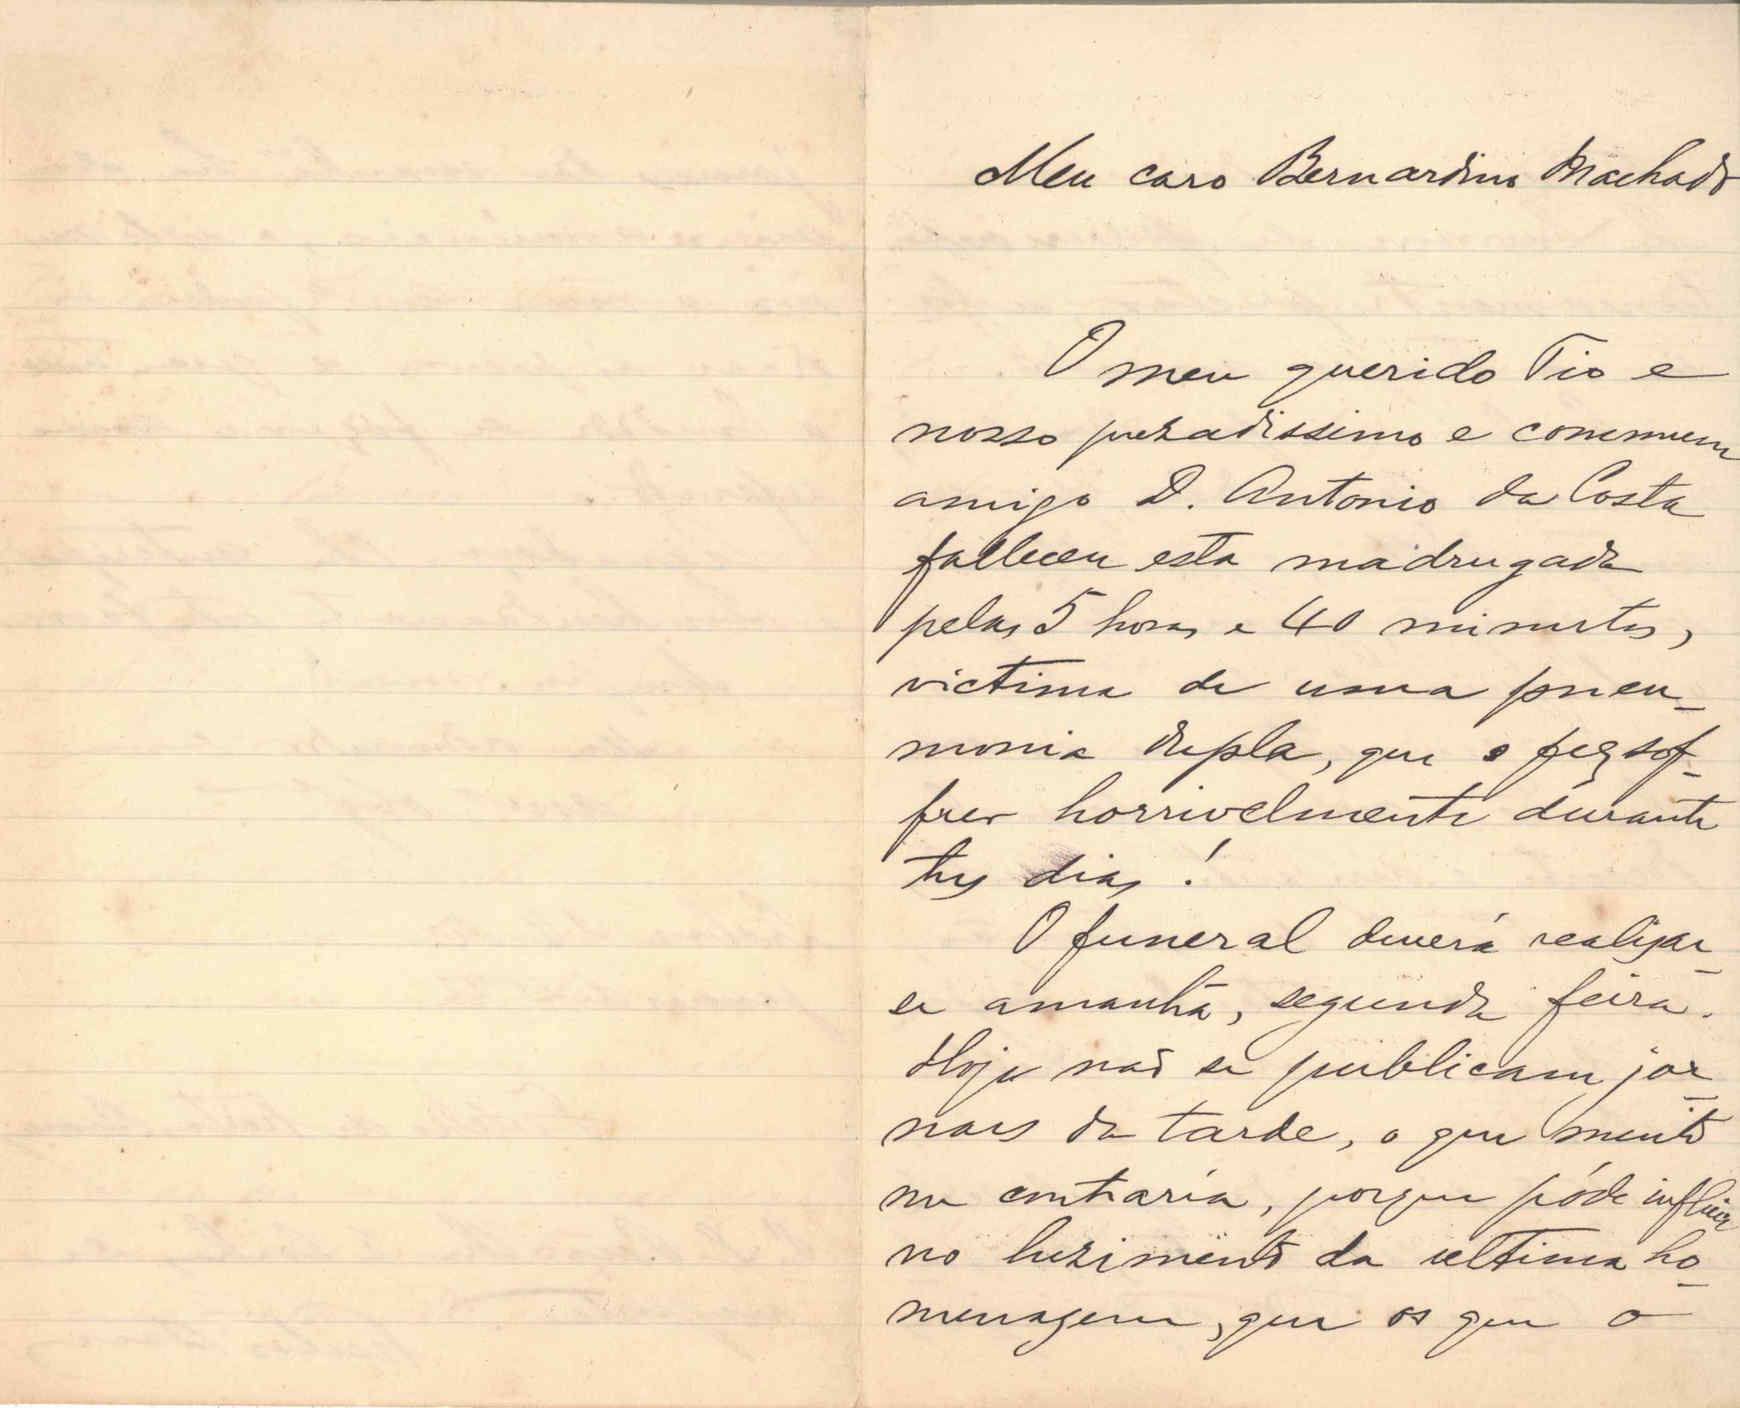 Meu caro Bernardino Machado
O meu querido Tio e
nosso prezadissimo e commum
amigo D. Antonio da Costa
falleceu esta madrugada
pelas 5 horas e 40 minutos,
victima de uma pneu-
monia dupla, que o fez sof-
frer horrivelmente durante
tres dias!
O funeral deverá realizar-
se amanhã, segunda feira.
Hoje não se publicam jor-
naes da tarde, o que muito
me contraria, porque póde influir
no luzimento da ultima ho-
menagem, que os que o